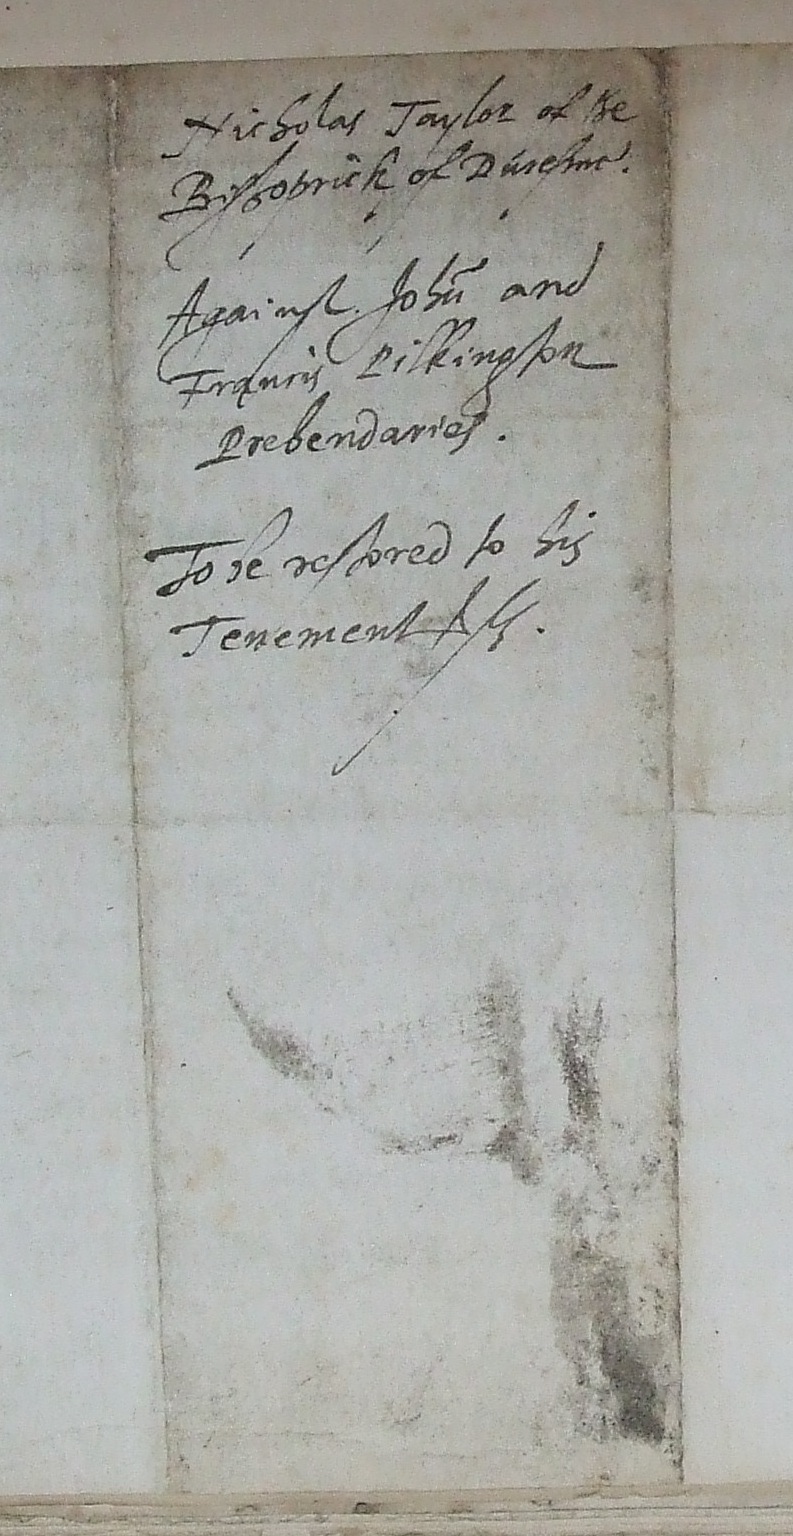 Nicholas Taylor of the
Bishoprick of Duresme.
Against John and
Francis Pilkington
Prebendaries.
To be restored to his
Tenement &c.